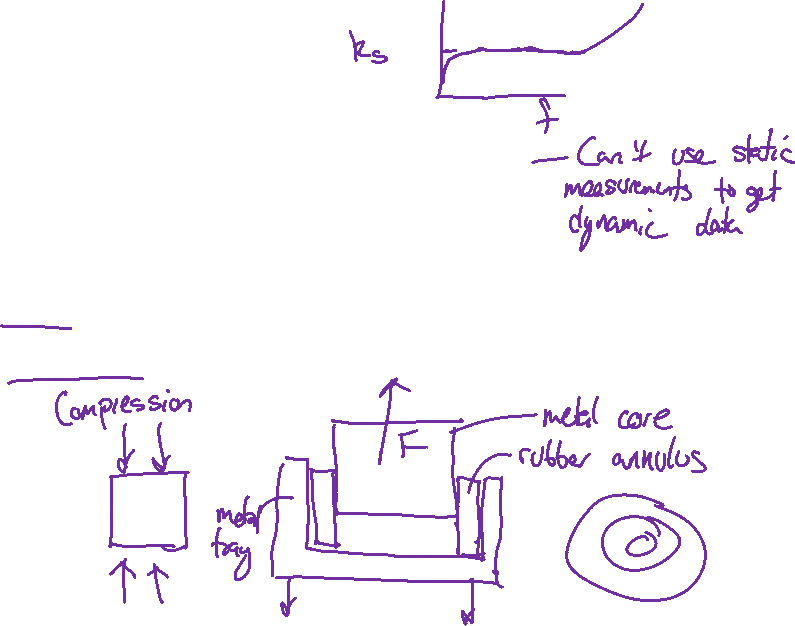 ks
f
— Can't use static
measurements to get
dynamic data
Compression
F
metal core
rubber annulus
metal
tray